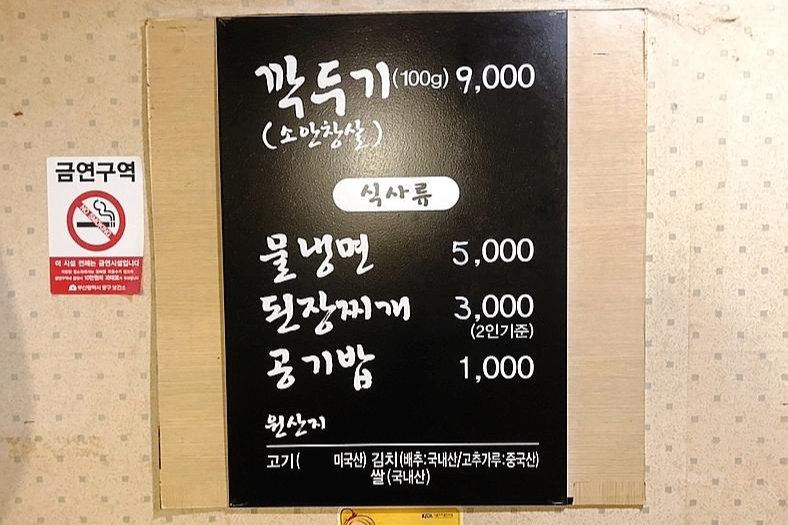 깍두기(100g) 9,000
(소안창살)
식사류
물냉면 5,000
된장찌개 3,000
(2인기준)
공기밥 1,000
원산지
고기( 미국산) 김치(배추:국내산/고추가루:중국산)
쌀(국내산)
금연구역
NO SMOKING
이 시설 전체는 금연시설입니다